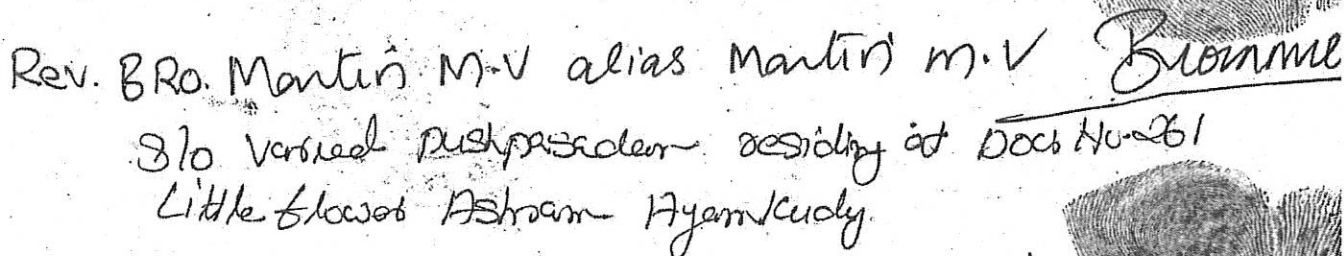 Rev. BRO. Martin M.V alias Martin M.V
S/o Varied pushpasadan residing at Door No-261
Little flower Ashram Ayamkudy.